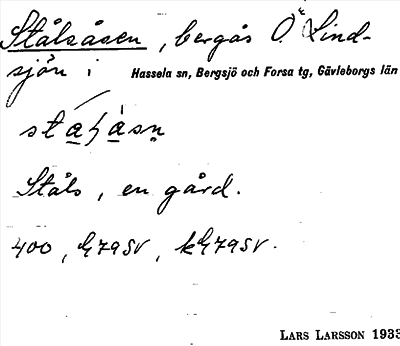 Stålsåsen, bergås Ö Lind-
sjön i Hassela sn, Bergsjö och Forsa tg, Gävleborgs län
Ståls, en gård.
400,
LARS LARSSON 1933